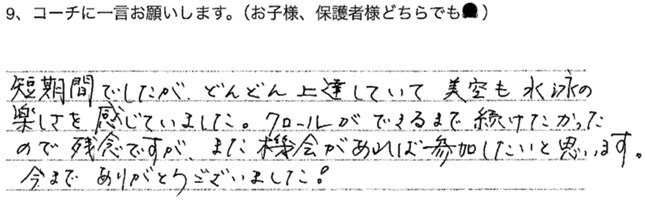 9、コーチに一言お願いします。（お子様、保護者様どちらでも●）
短期間でしたが、どんどん上達していて 美空も水泳の
楽しさを感じていました。クロールができるまで続けたかった
ので残念ですが、また機会があれば参加したいと思います。
今までありがとうございました！